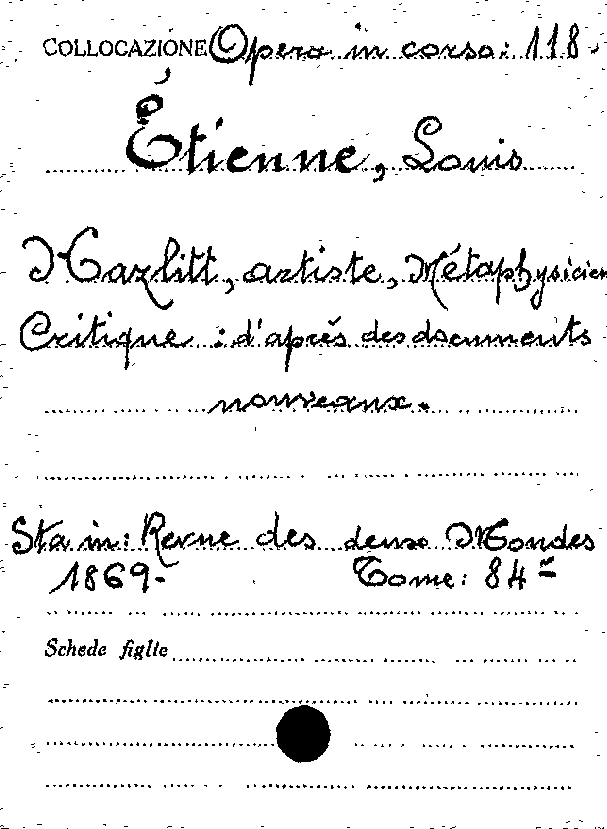 COLLOCAZIONE Opera in corso: 118.
Étienne, Louis
Hazlitt, artiste, Métaphysicien
Critique : d'après des documents
nouveaux.
Sta in: Revue des deux Mondes
1869- Tome: 84
Schede figlie